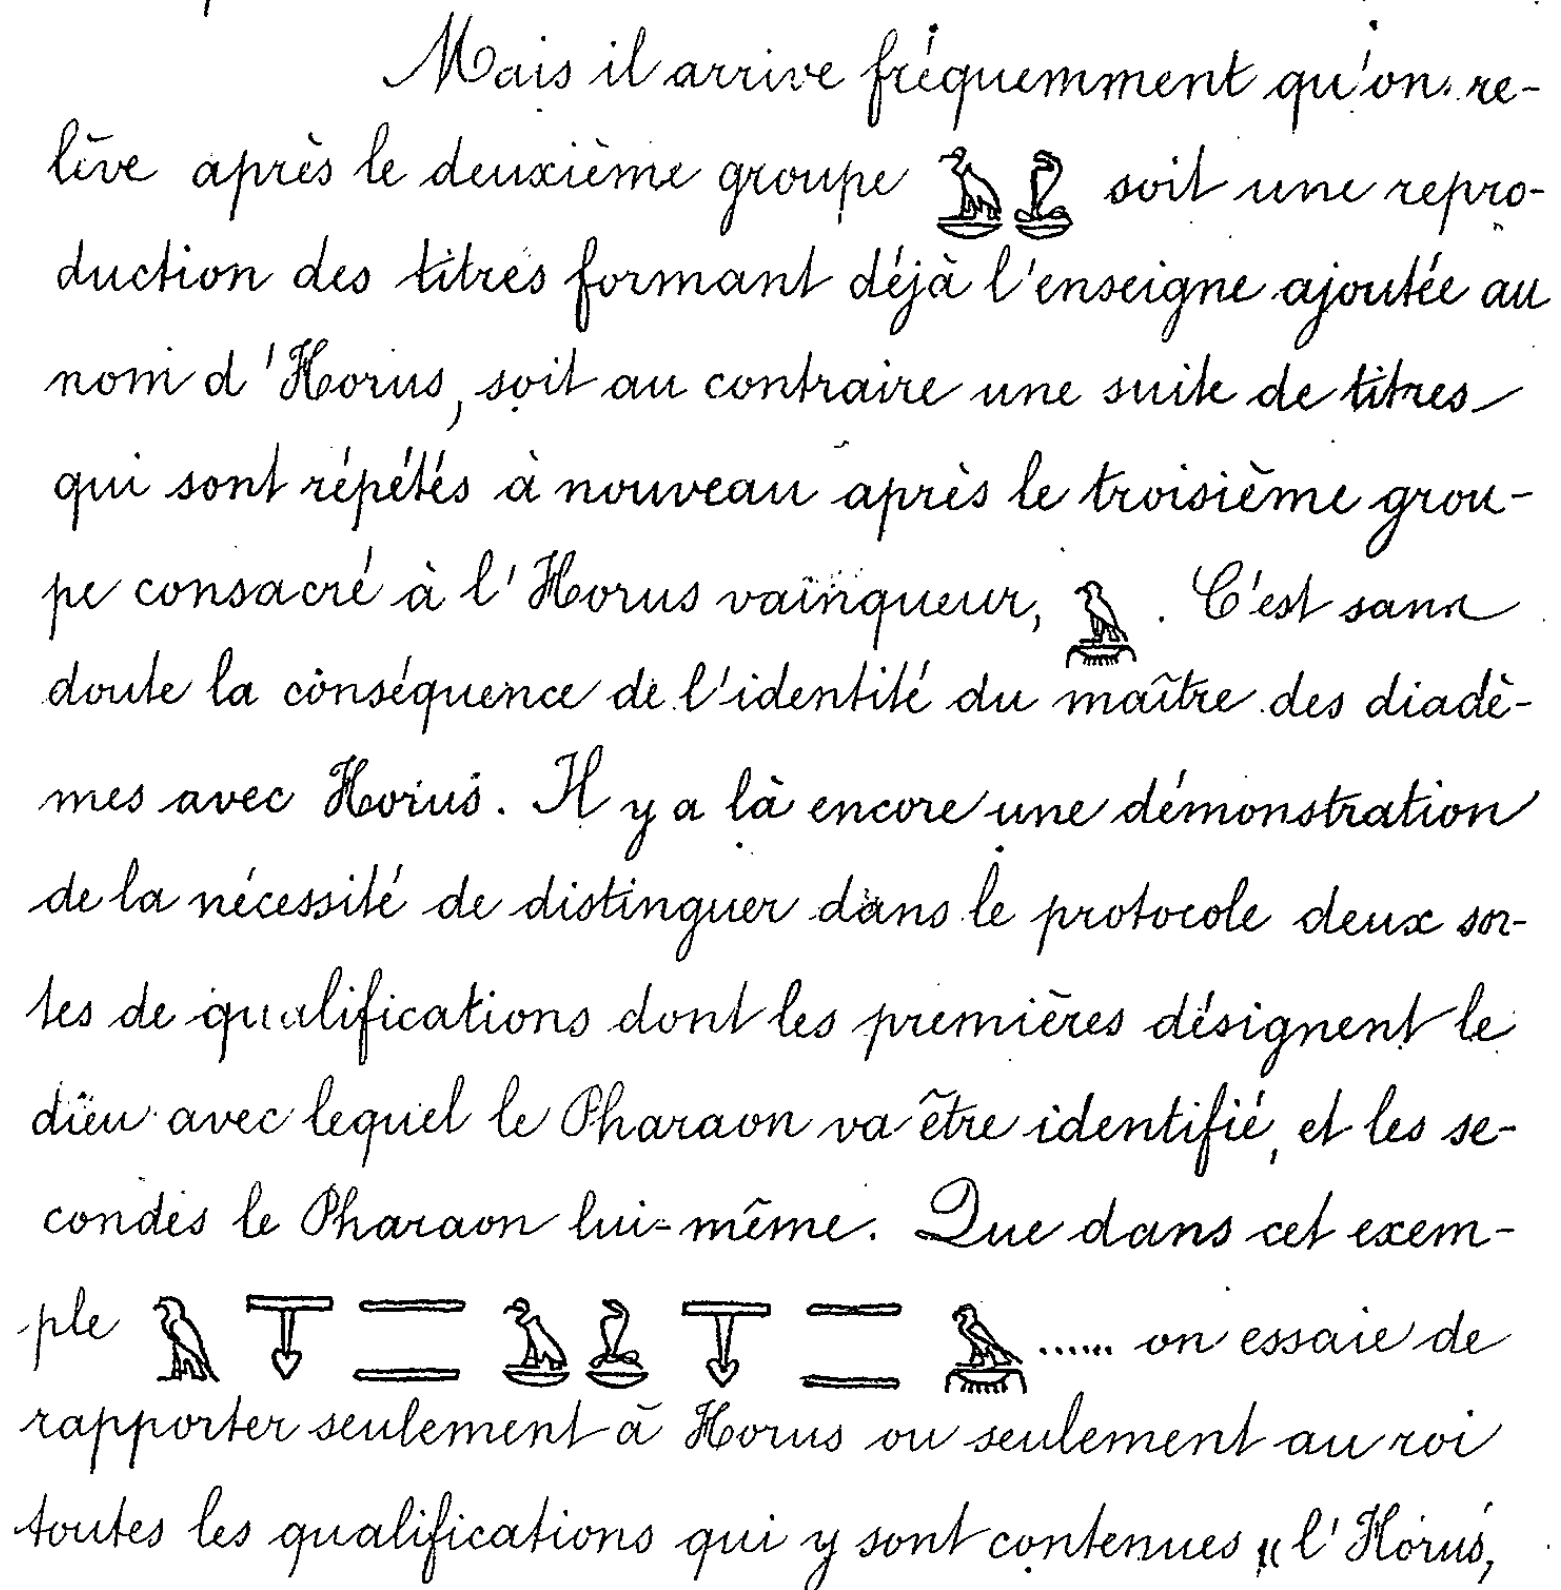 Mais il arrive fréquemment qu'on re-
lève après le deuxième groupe 𓅒 soit une repro-
duction des titres formant déjà l'enseigne ajoutée au
nom d'Horus, soit au contraire une suite de titres
qui sont répétés à nouveau après le troisième grou-
pe consacré à l'Horus vainqueur, 𓅉. C'est sans
doute la conséquence de l'identité du maître des diadè-
mes avec Horus. Il y a là encore une démonstration
de la nécessité de distinguer dans le protocole deux sor-
tes de qualifications dont les premières désignent le
dieu avec lequel le Pharaon va être identifié, et les se-
condes le Pharaon lui-même. Que dans cet exem-
ple 𓅃 𓄥 𓇾𓇾 𓅒 𓄥 𓇾𓇾 𓅉...... on essaie de
rapporter seulement à Horus ou seulement au roi
toutes les qualifications qui y sont contenues « l'Horus,